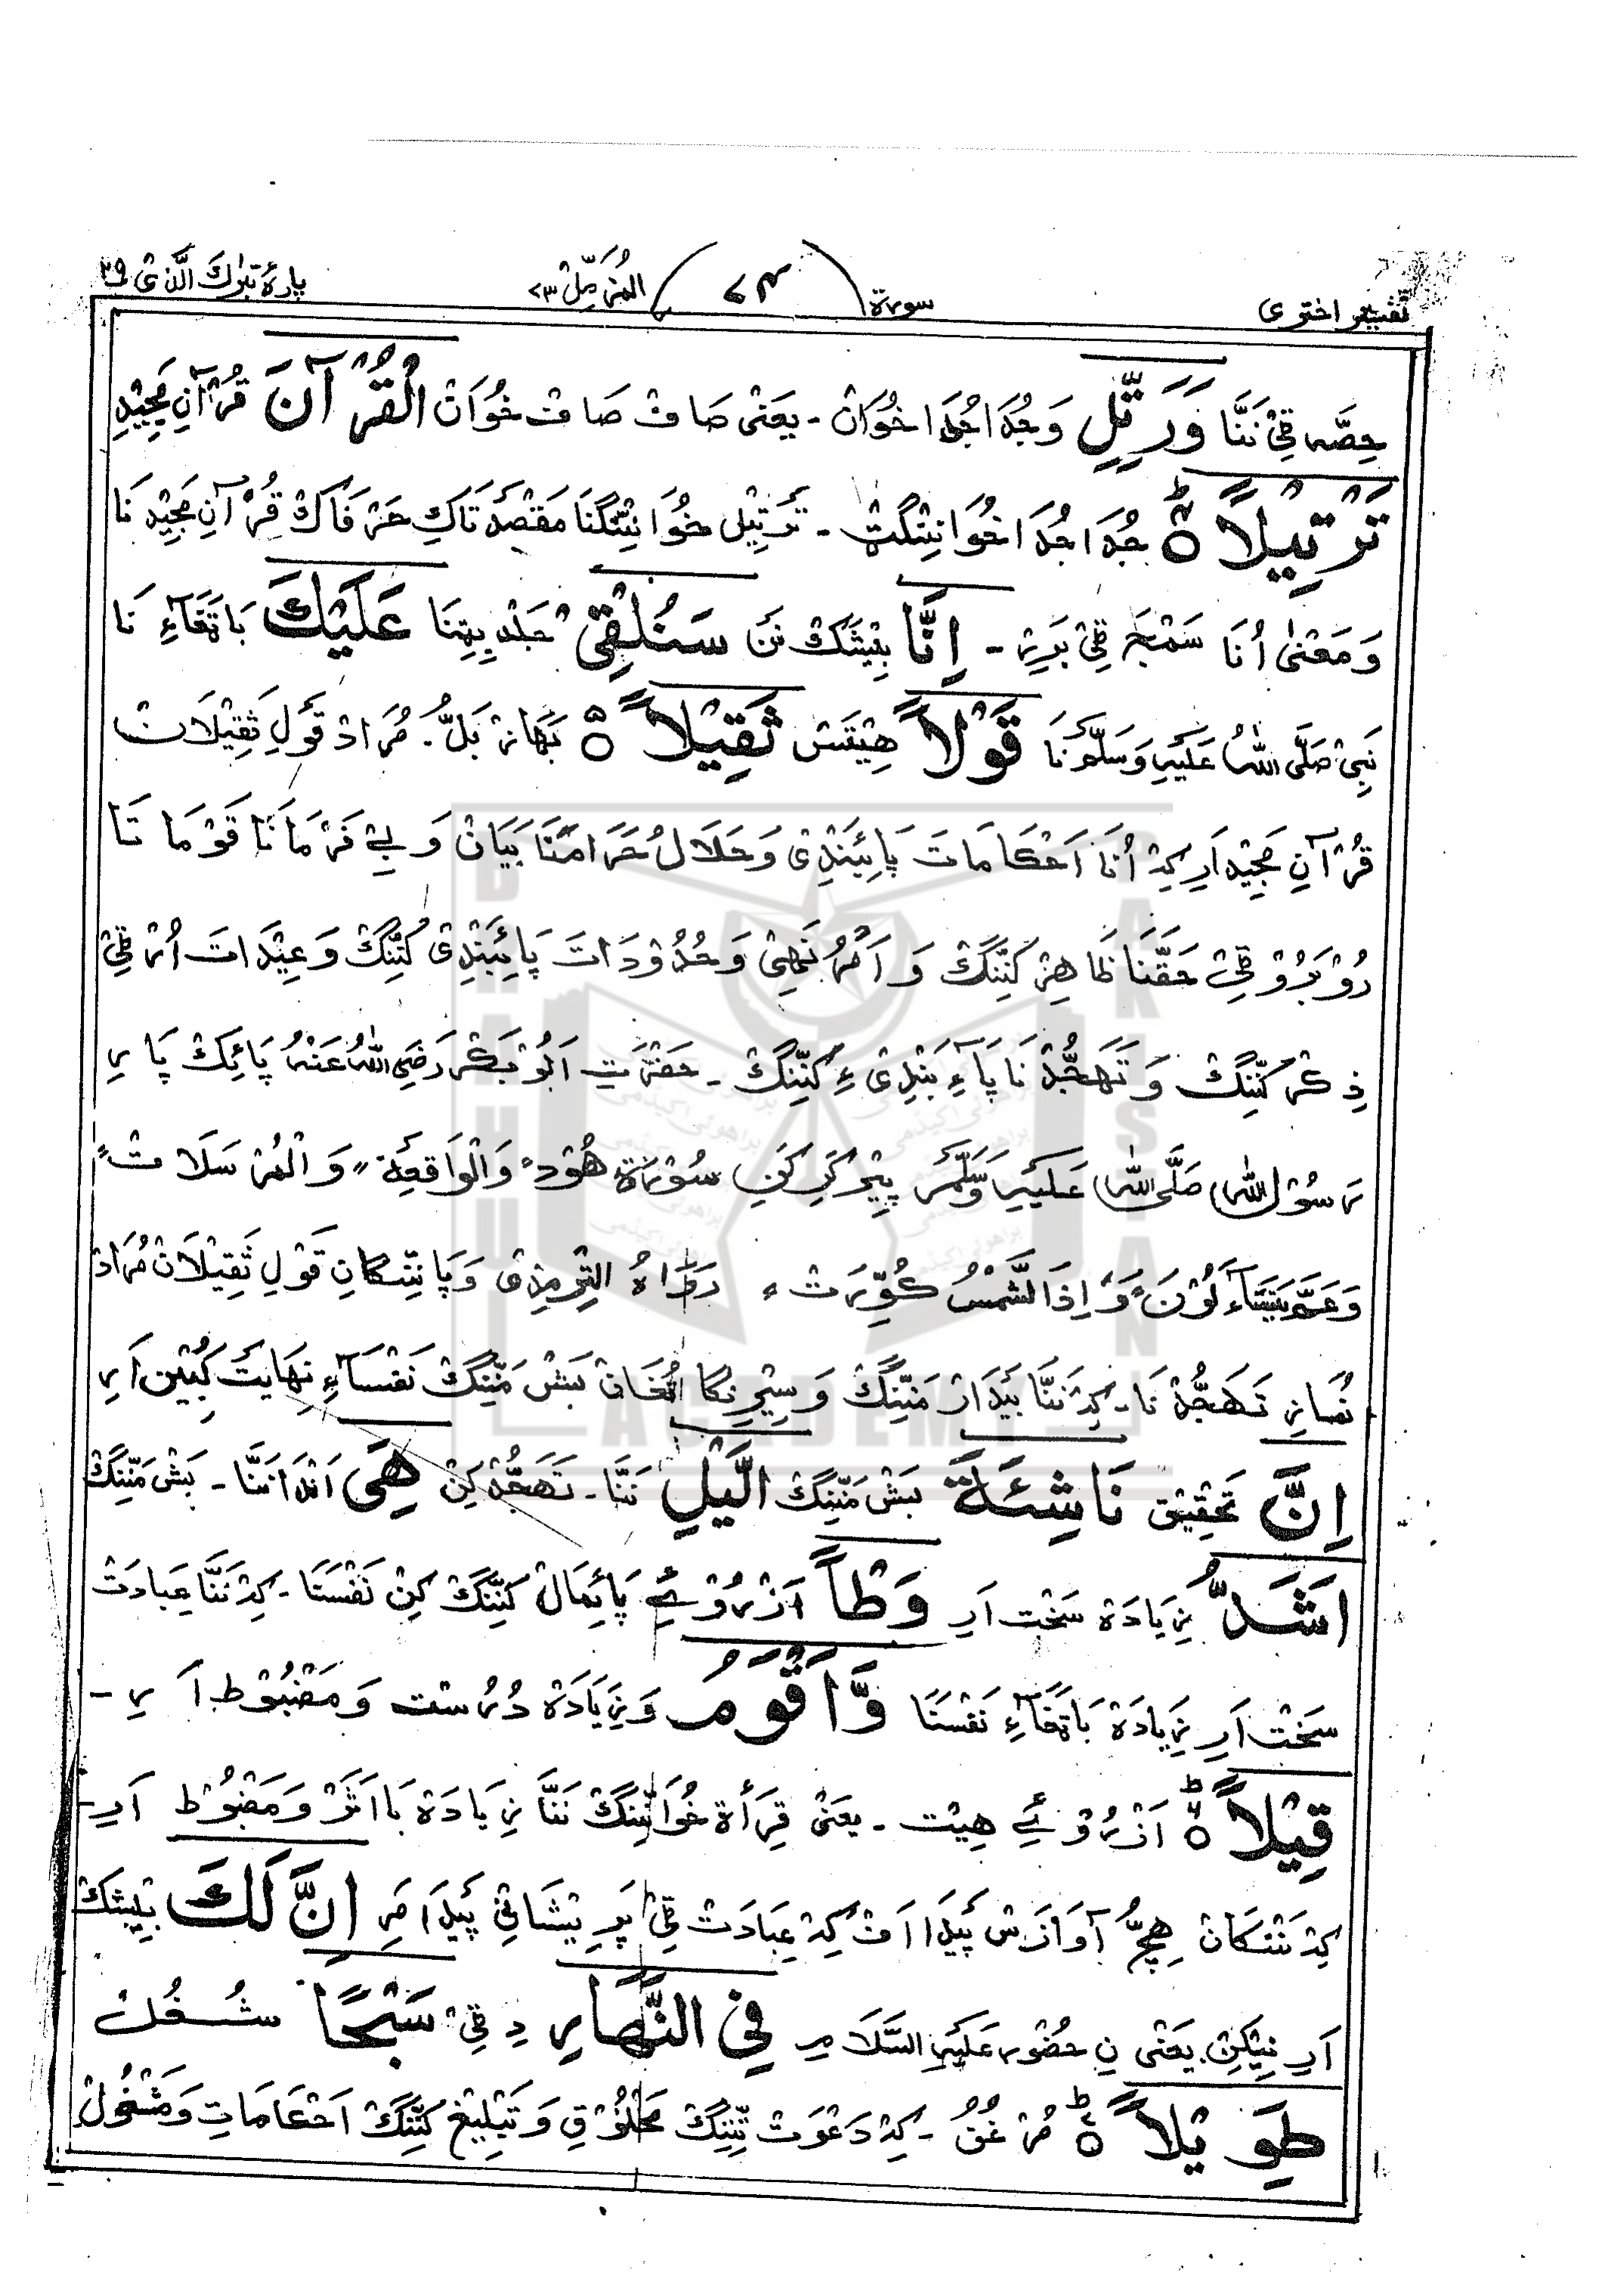 تفسير اختری سورة ٧٤ المُزَمِّلْ ٧٣ پارهٔ تَبٰرَكَ الَّذِىْ ٢٩
حِصَّہ ٹِیْ نَنَّا وَرَتِّلِ وَجُدَا جُدَا خُوَانْ - یَعْنٖی صَافْ صَافْ خُوَانْ الْقُرْآنَ قُرْآنِ مَجِیْدِ
تَرْتِيْلًا ۵ جُدَا جُدَا خُوَانِنْگٹ - تَرْتِیْل خُوَانِنْگنَا مَقْصَدْ تَاکِ حَرْفَاکْ قُرْآنِ مَجِیْدْ نَا
وَ مَعْنیٰ اُنَا سَمْجَہ ٹِیْ بَرِیْر - اِنَّا بِیْشَکْ نَن سَنُلْقِىْ جَلْد بِٹِنَا عَلَيْكَ بَاتَغَآءِ نَا
نَبِیْ صَلَّی اللّٰهُ عَلَیْہِ وَسَلَّمْ نَا قَوْلًا هِیْتَسْ ثَقِيْلًا ۵ بَهَاز بَلُّ. مُرَادْ قَوْلِ ثَقِیْلَانْ
قُرْآنِ مَجِیْد اَرِ کِ اُنَا اَحْکَامَاتَ پَائِبَنْدِیْ وَحَلَالْ حَرَامَنَا بَیَانْ وَ بے فَرْمَانَا قَوْمَا تَا
رُوْبَرُوْ ٹِیْ حَقَّنَا ظَاهِرْ کَنِّنْگ وَ اَمْر نَهِیْ وَحُدُوْدَاتَ پَائِبَنْدِیْ کَنِّنْگ وَعِیْدَاتَ اُرْ ٹِیْ
ذِکْر کَنِّنْگ وَ تَهَجُّدْ نَا پَاءِبَنْدِیْ ءِ کَنِّنْگ - حَضْرَتِ اَبُوْبَکْر رَضِیَ اللّٰهُ عَنْہُ پَائِکْ پَارِ
رَسُوْلُ اللّٰهِ صَلَّی اللّٰهُ عَلَیْہِ وَسَلَّمَ پِیْر کَرِ کَنِ سُوْرَۃ هُوْد وَالْوَاقِعَۃ وَالْمُرْسَلَاتْ
وَعَمَّ یَتَسَآءَلُوْنَ وَ اِذَا الشَّمْسُ کُوِّرَتْ رَوَاهُ التِّرْمِذِیْ وَپَا نِنْکَانِ قَوْلِ ثَقِیْلَانْ مُرَادْ
نُمَازِ تَهَجُّدْ نَا - کِ نَنَّا بَیْدَارْ مَنِّنْگ وَ تُغَانْ بَشْ مَنِّنْگ نَفْسَاءِ نِهَایَتْ کُبِیْن اَرِ
اِنَّ تَحْقِیْق نَاشِئَةَ بَشْ مَنِّنْگ الَّيْلِ نَنَّا - تَهَجُّدْ کِنْ هِىَ اَنْدَا نَنَّا - بَشْ مَنِّنْگ
اَشَدُّ زِیَادَہ سَخْت اَرِ وَطْاً اَزْرُوْئے پَائِمَالْ کَنِّنْگ کِنْ نَفْسَنَا - کِ نَنَّا عِبَادَتْ
سَخْت اَرِ زِیَادَہ بَاتَغَآءِ نَفْسَنَا وَّاَقْوَمُ وَزِیَادَہ دُرُسْت وَ مَضْبُوْط اَرِ -
قِيْلًا ۵ اَزْرُوْئے هِیْت - یَعْنٖی قِرَأَۃ خُوَانِنْگ نَنَّا زِیَادَہ بَااَثَرْ وَ مَضْبُوْط اَرِ -
کِ نَنْکَانْ هِچُّ آوَازَسْ پَیْدَا اَفْ کِ عِبَادَتْ ٹِیْ پَرِیْشَانِیْ پَیْدَا مَرِ اِنَّ لَكَ بِیْشَکْ
اَرِ نِیْکِنْ. یَعْنٖی نِ حُضُوْر عَلَیْہِ السَّلَامِ فِى النَّهَارِ دِ ٹِیْ سَبْحًا شُغُلْ
طَوِيْلًا ۵ مُرْغُنُ - کِ دَعْوَتْ تِنِنْگ مَخْلُوْق وَ تَبْلِیْغ کَنِّنْگ اَحْکَامَاتِ وَ مَشْغُوْل
BRAHUI ACADEMY PAKISTAN